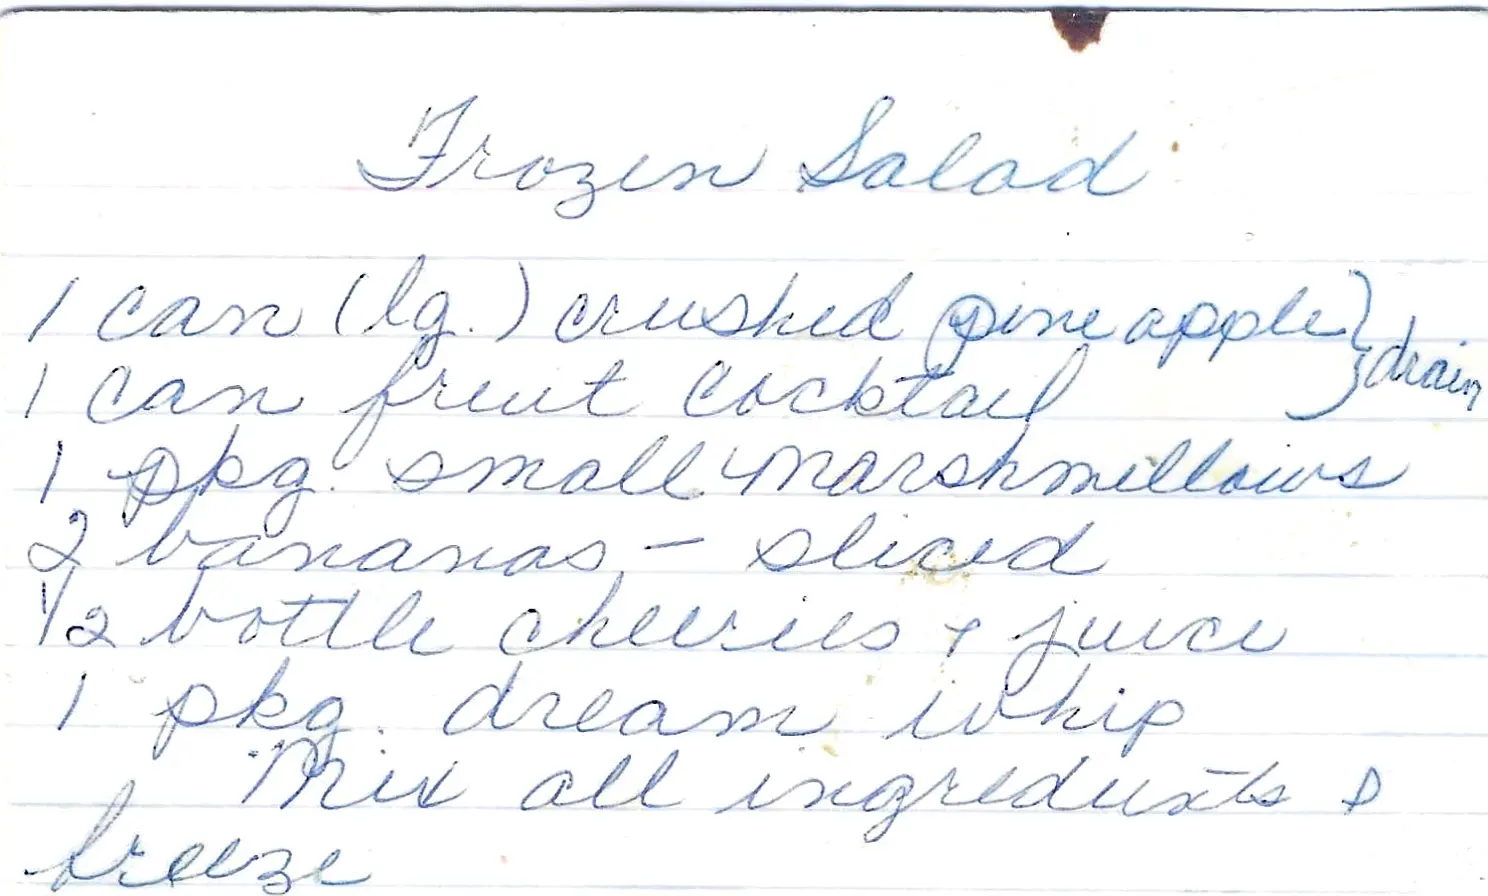 Frozen Salad
1 can (lg.) crushed pineapple } drain
1 can fruit cocktail
1 pkg. small marshmillows
2 bananas - sliced
1/2 bottle cherries + juice
1 pkg. dream whip
Mix all ingredients &
freeze